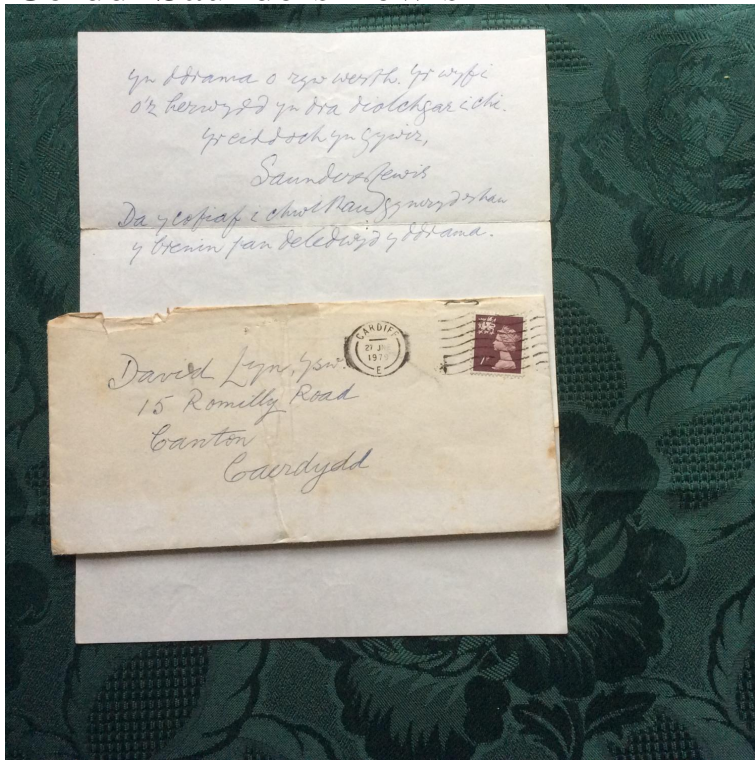 yn ddrama o ryw werth. Yr wyf i
o'r herwydd yn dra diolchgar i chi.
Yr eiddoch yn gywir,
Saunders Lewis
Da y cofiaf i chwi
y brenin pan deledwyd y ddrama.
CARDIFF
1979
E
David Lyn, Ysw.
15 Romilly Road
Canton
Caerdydd